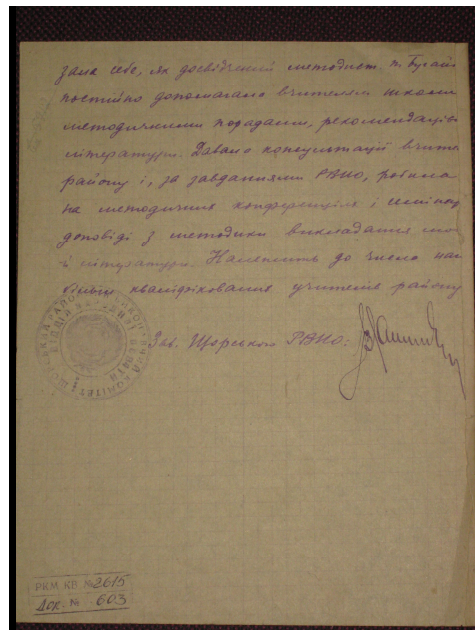 зала себе, як досвідчений методист. т. Бугай
постійно допомагала вчителям школи
методичними порадами, рекомендаці
літератури. Давала консультації вчите
району і, за завданнями РАНО, робила
на методичних конференціях і семіна
доповіді з методики викладання мо
й літератури. Належить до числа най
більш кваліфікованих учителів району
Зав. Щорського РАНО:
РКМ КВ №2615
Док. № 603